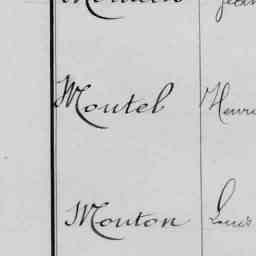 Moutel Henri
Mouton Louis